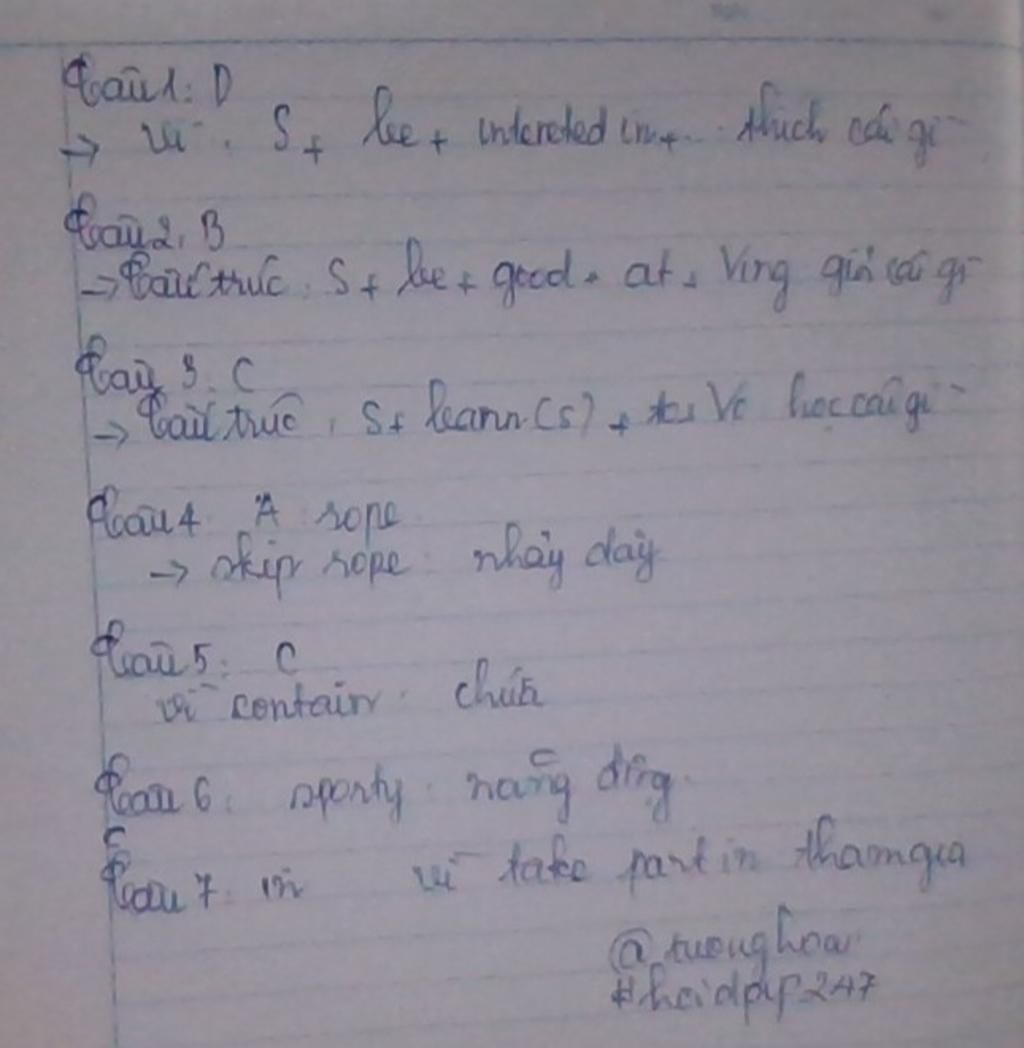 Câu 1: D
→ Vì: S + be + intereted in + ... thích cái gì
Câu 2: B
→ Cấu trúc: S + be + good + at + Ving giỏi cái gì
Câu 3: C
→ Cấu trúc: S + learn(s) + to + V học cái gì
Câu 4: A rope
→ skip rope: nhảy dây
Câu 5: C
vì contain: chứa
Câu 6: sporty: năng động
Câu 7: in vì take part in tham gia
@tuonghoa
#hoidap247